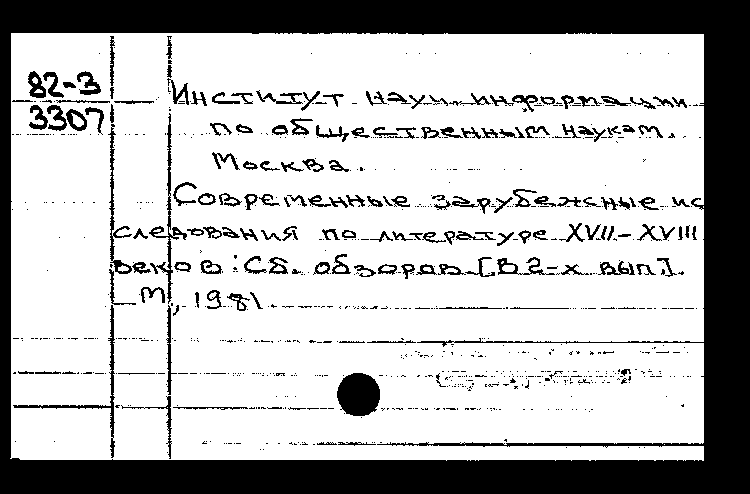 82-3
3307
Институт науч. информации
по общественным наукам.
Москва.
Современные зарубежные ис
следования по литературе XVII-XVIII
веков: Сб. обзоров. [В 2-х вып].
_М, 1981.